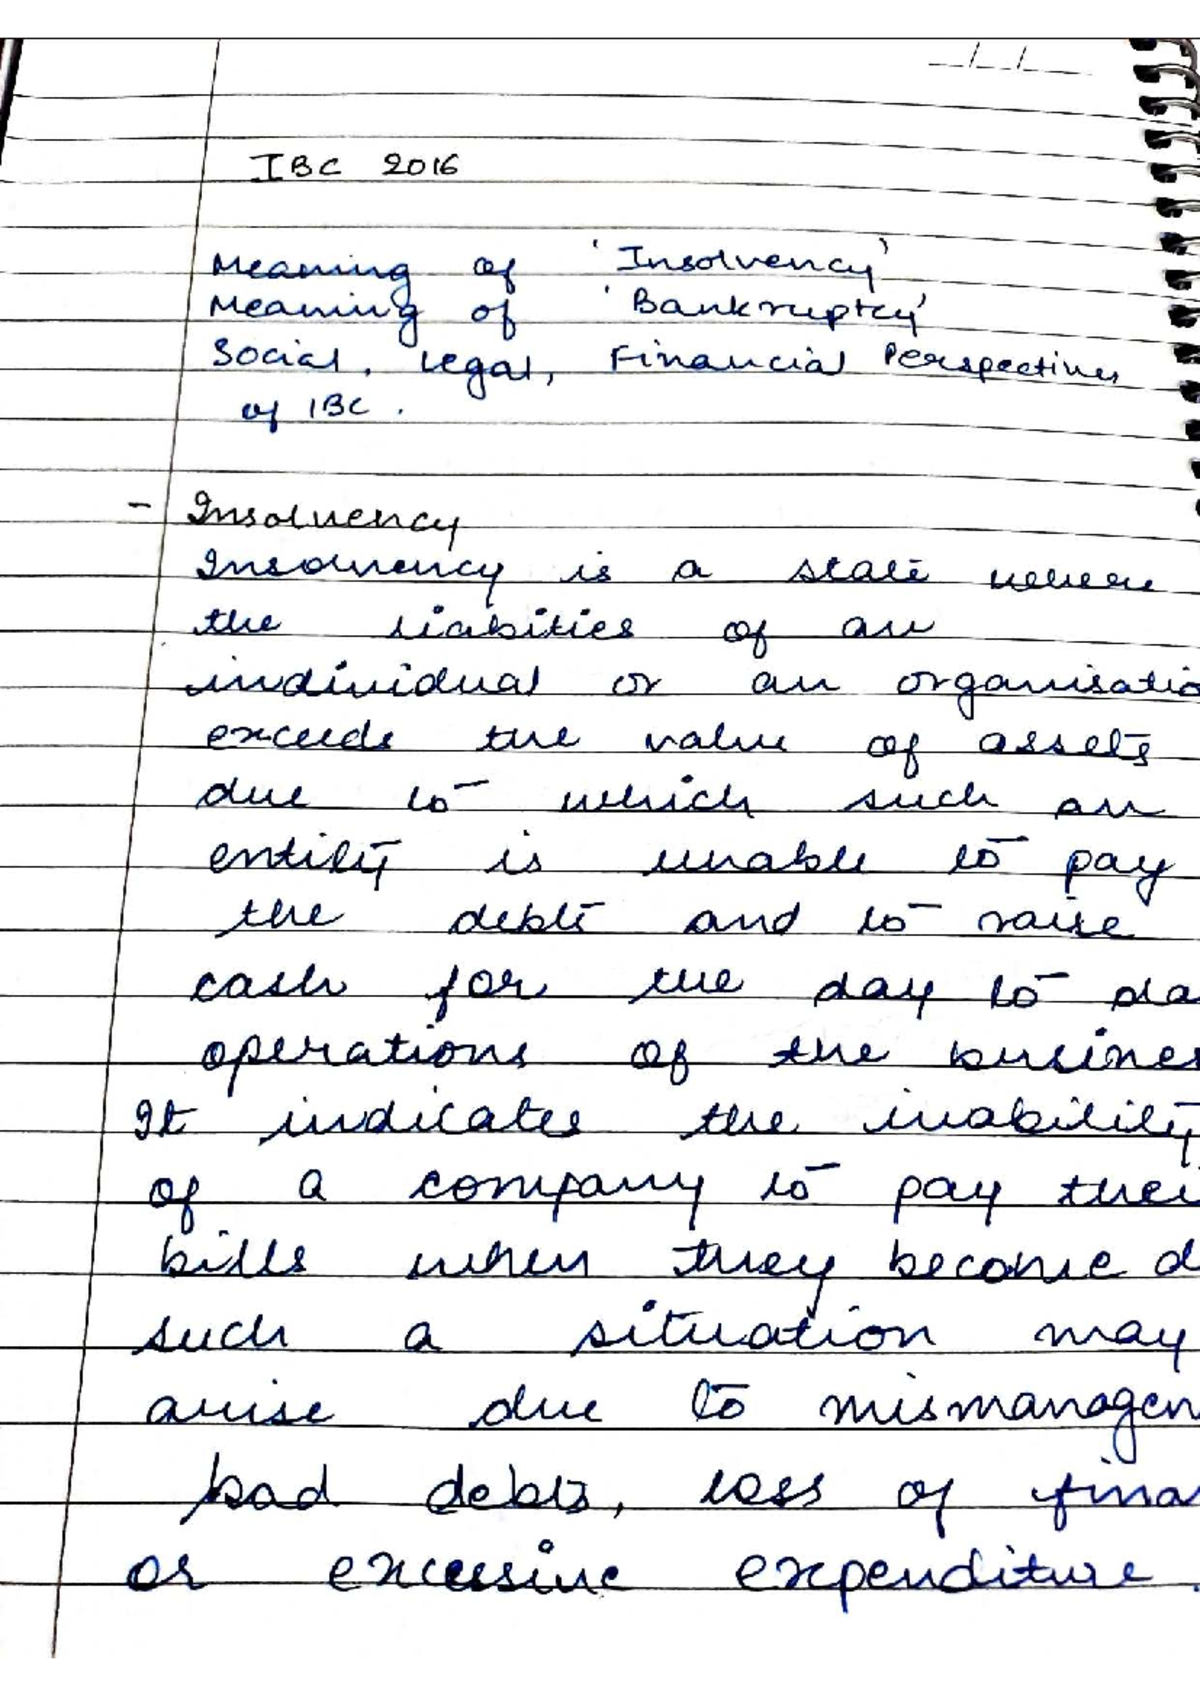 IBC 2016
Meaning of 'Insolvency'
Meaning of 'Bankruptcy'
Social, Legal, Financial Perspectives
of IBC.
- Insolvency
Insolvency is a state where
the liabities of an
individual or an organisatio
exceeds the value of assets
due to which such an
entity is unable to pay
the debts and to raise
cash for the day to da
operations of the busines
It indicates the inability
of a company to pay thei
bills when they become d
such a situation may
arise due to mismanagem
bad debts, loss of fina
or excessive expenditure.